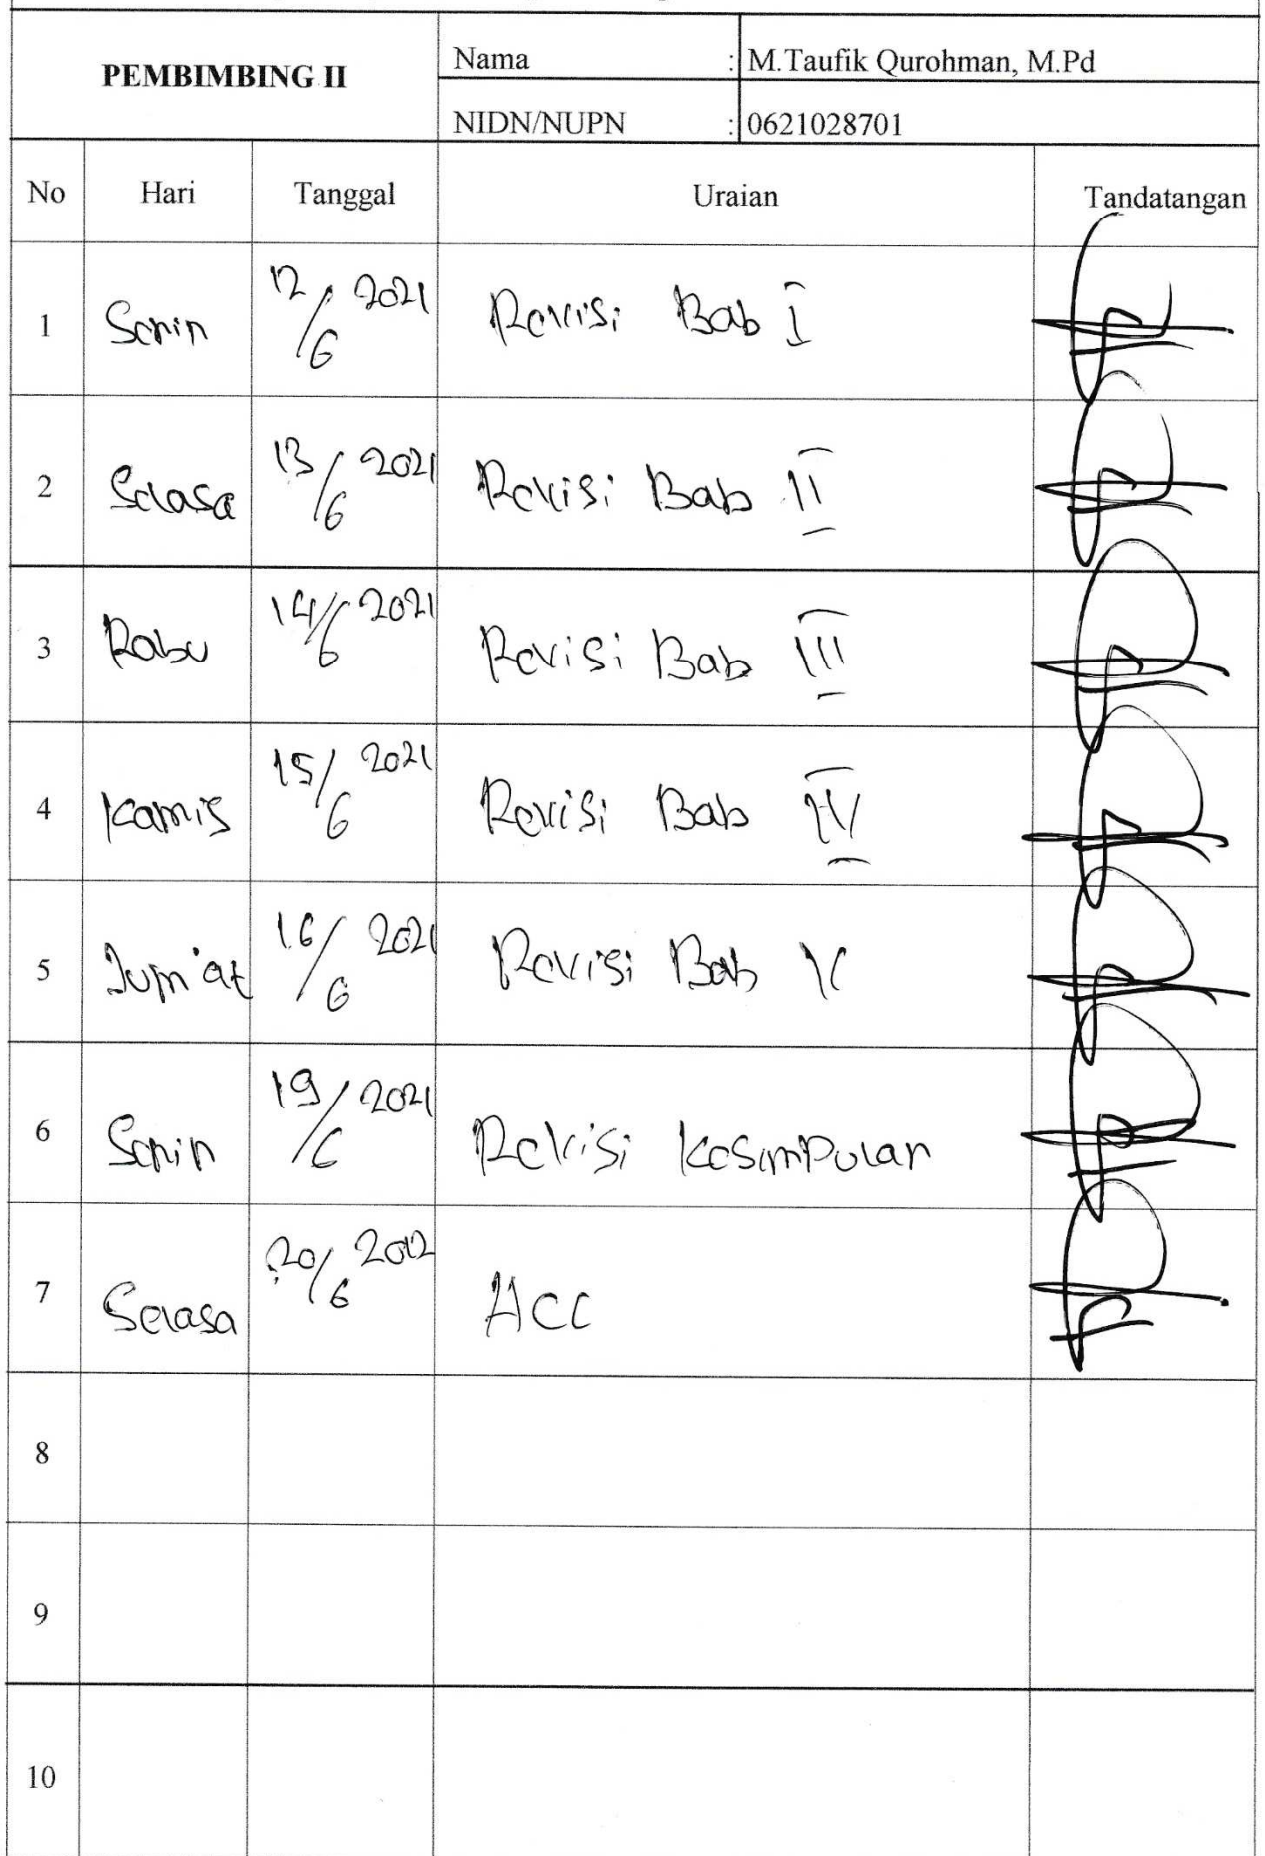 PEMBIMBING II
Nama : M.Taufik Qurohman, M.Pd
NIDN/NUPN : 0621028701
No Hari Tanggal Uraian Tandatangan
1 Senin 12/6 2021 Revisi Bab I
2 Selasa 13/6 2021 Revisi Bab II
3 Rabu 14/6 2021 Revisi Bab III
4 Kamis 15/6 2021 Revisi Bab IV
5 Jum'at 16/6 2021 Revisi Bab V
6 Senin 19/6 2021 Revisi Kesimpulan
7 Selasa 20/6 Acc
8
9
10